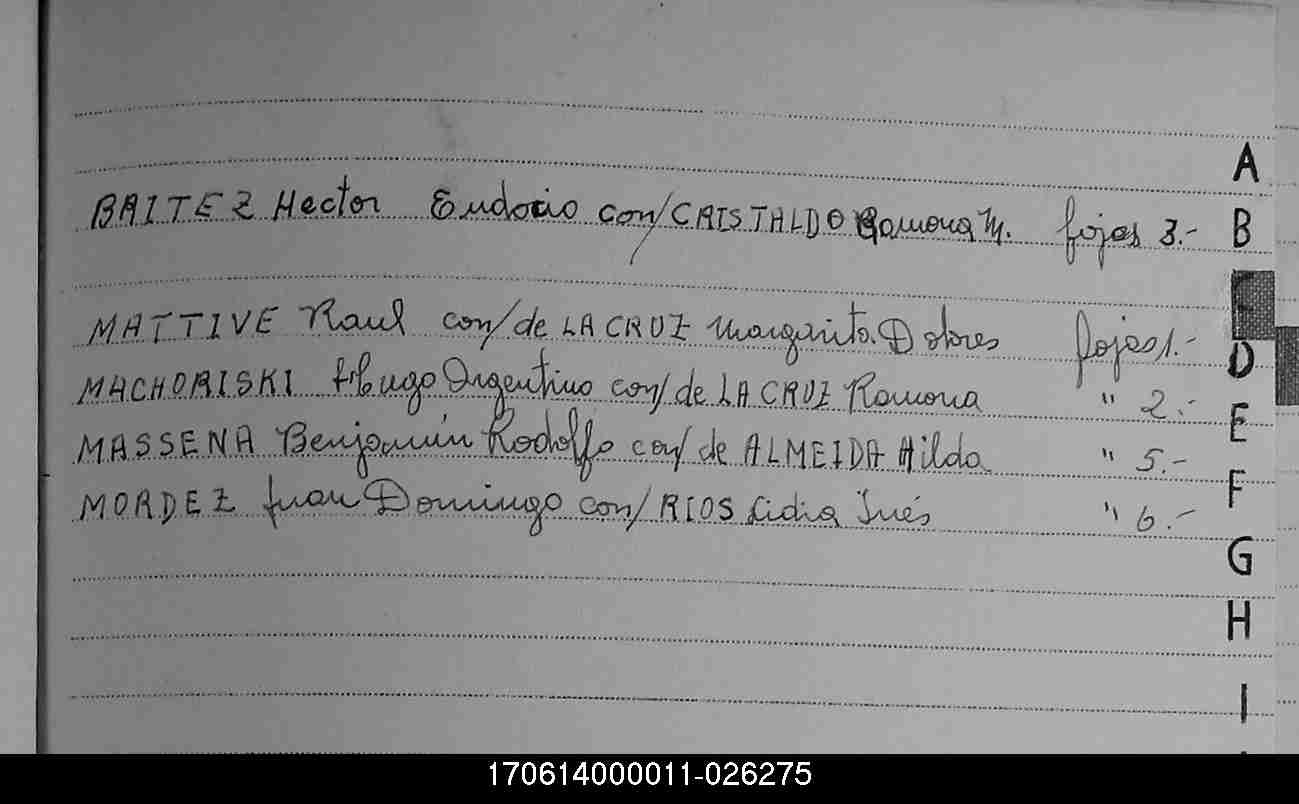 BAITEZ Hector Eudocio con/CRISTALDO Ramona M. fojas 3.-
MATTIVE Raul con/de LA CRUZ Margarita Dolores fojas 1.-
MACHORISKI Hugo Argentino con/ de LA CRUZ Ramona " 2.-
MASSENA Benjamín Rodolfo con/ de ALMEIDA Hilda " 5.-
MORDEZ Juan Domingo con/ RIOS Lidia Inés " 6.-
A
B
D
E
F
G
H
I
170614000011-026275